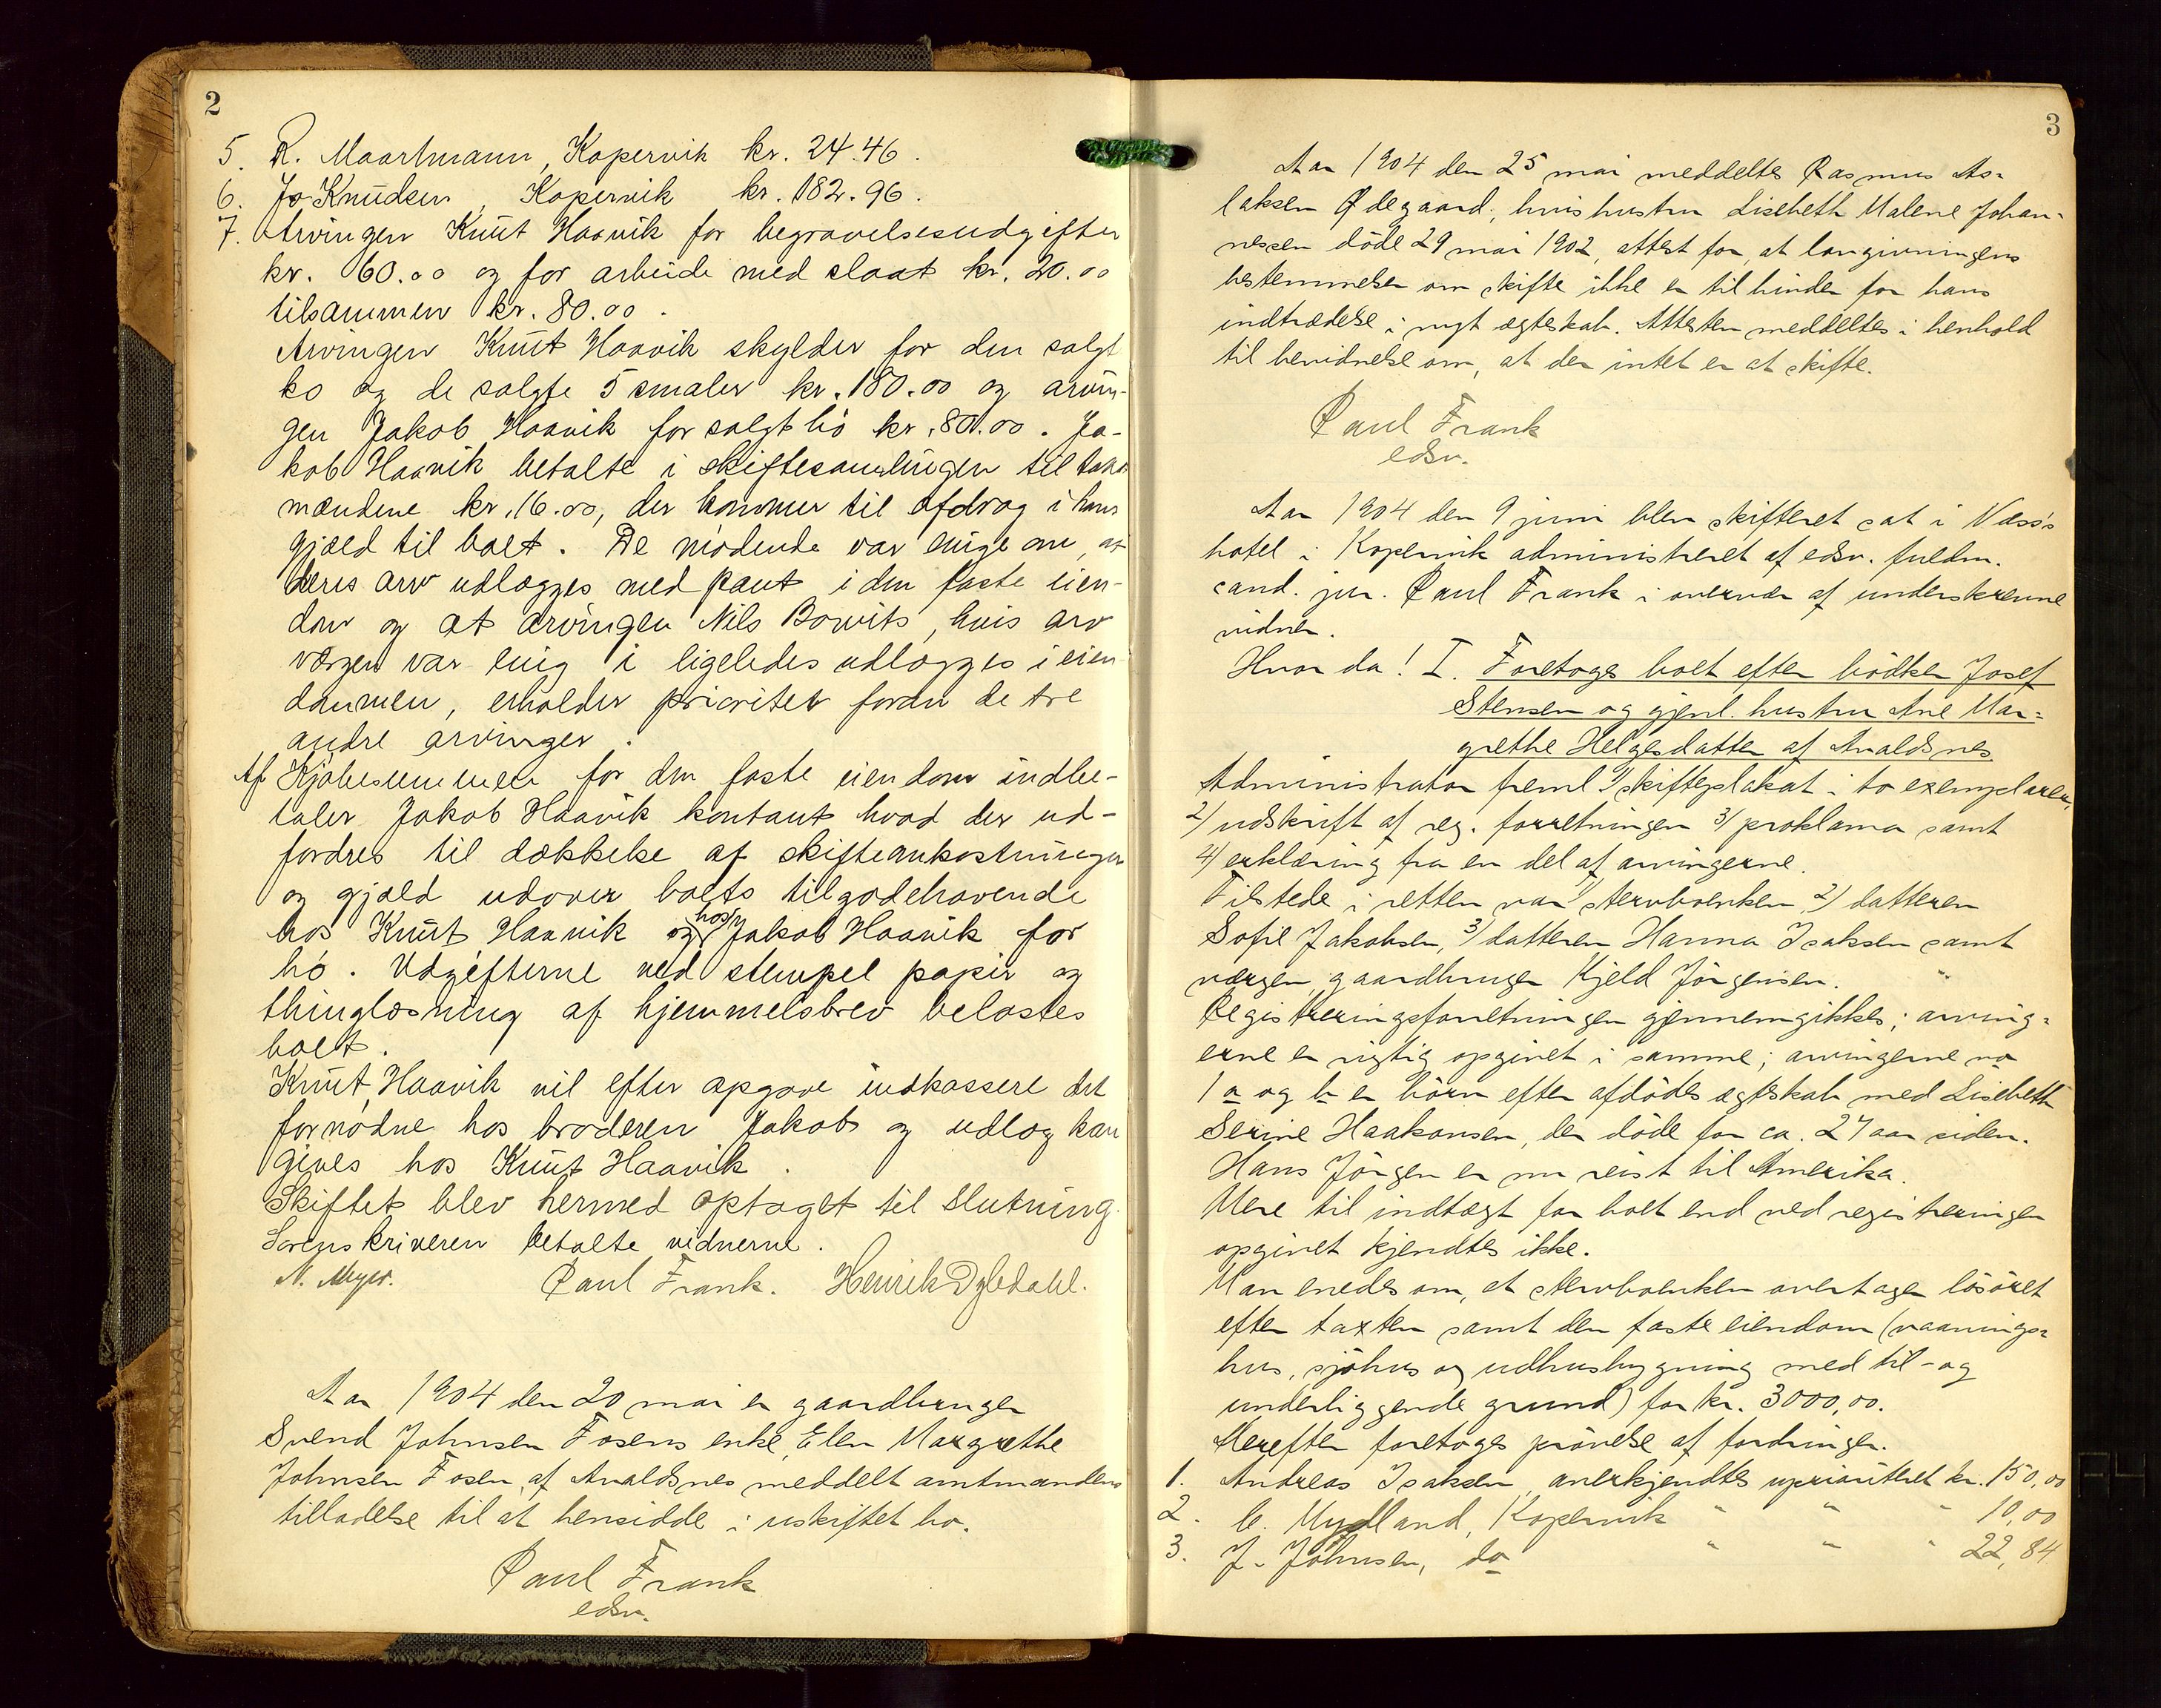 2
5. R. Maartmann, Kopervik kr. 24.46.
6. Js Knudsen, Kopervik kr. 182.96.
7. Arvingen Knut Haavik for begravelsesudgifter
kr. 60.00 og for arbeide med slaat kr. 20.00
tilsammen kr. 80.00.
Arvingen Knut Haavik skylder for den solgt
ko og de solgte 5 smaler kr. 180.00 og arvin-
gen Jakob Haavik for solgt hö kr. 80.00. Ja-
kob Haavik betalte i skiftesamlingen til takst
mændene kr. 16.00, der kommer til afdrag i hans
gjæld til boet. De mödende var enige om, at
deres arv udlægges med pant i den faste eien-
dom og at arvingen Nils Bowits, hvis arv
værgen var enig i ligeledes udlægges i eien-
dommen, erholder prioritet foran de tre
andre arvinger.
Af Kjöbesummen for den faste eiendom indbe-
taler Jakob Haavik kontant hvad der ud-
fordres til dækkelse af skifteomkostninger
og gjæld udover boets tilgodehavende
hos Knut Haavik og hos Jakob Haavik for
hö. Udgifterne ved stempel papir og
thinglæsning af hjemmelsbrev belastes
boet.
Knut Haavik vil efter opgave indkassere det
fornödne hos broderen Jakob og udlæg kan
gives hos Knut Haavik.
Skiftet blev hermed optaget til slutning.
Sorenskriveren betalte vidnerne.
N. Meyer. Paul Frank. Henrik Dybdahl.
Aar 1904 den 20 mai er gaardbruger
Svend Johnsen Fosens enke, Elen Margrethe
Johnsen Fosen, af Avaldsnes meddelt amtmandens
tilladelse til at hensidde i uskiftet bo.
Paul Frank
edsv.
3
Aar 1904 den 25 mai meddeltes Rasmus As-
laksen Ödegaard, hvis hustru Lisebeth Malene Johan-
nessen döde 29 mai 1902, attest for, at lovgivningens
bestemmelser om skifte ikke er til hinder for hans
indtrædelse i nyt ægteskab. Attesten meddeltes i henhold
til bevidnelse om, at der intet er at skifte.
Paul Frank
edsv.
Aar 1904 den 9 juni blev skifteret sat i Næss's
hotel i Kopervik administreret af edsv. fuldm.
cand. jur. Paul Frank i overvær af underskrevne
vidner.
Hvor da! I. Foretoges boet efter bödker Josef
Stensen og gjenl. hustru Ane Mar-
grethe Helgesdatter af Avaldsnes.
Administrator freml 1/ skifteplakat i to exemplarer,
2/ udskrift af reg. forretningen 3/ proklama samt
4/ erklæring fra en del af arvingerne.
Tilstede i retten var 1/ stervboenken, 2/ datteren
Sofie Jakobsen, 3/ datteren Hanna Isaksen samt
værgen, gaardbruger Kjeld Jörgensen.
Registreringsforretningen gjennemgikkes; arving-
erne er rigtig opgivet i samme; arvingerne no
1 a og b er börn efter afdödes ægteskab med Lisebeth
Serine Haakonsen, der döde for ca. 27 aar siden.
Hans Jörgen er nu reist til Amerika.
Mere til indtægt for boet end ved registreringen
opgivet kjendtes ikke.
Man enedes om, at stervboenken overtager lösöret
efter taxten samt den faste eiendom (vaanings-
hus, sjöhus og udhusbygning med til- og
underliggende grund) for kr. 3000,00.
Derefter foretoges prövelse af fordringer.
1. Andreas Isaksen, anerkjendtes uprioriteret kr. 150,00
2. C. Mydland, Kopervik " " " 10,00
3. J. Johnsen, do " " " 22,84